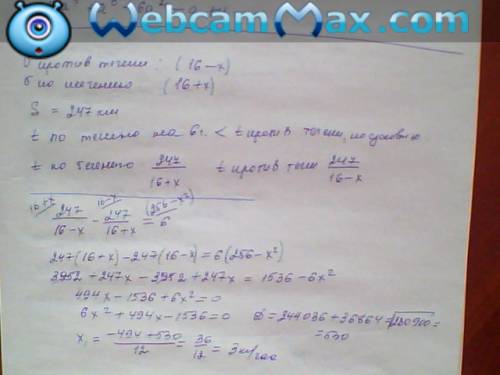 WebcamMax.com
V против течения : (16-x)
б по течению (16+x)
S = 247 км
t по течению на 6 г. < t против течен, по условию
t по течению 247/(16+x) t против теч 247/(16-x)
247/(16-x) - 247/(16+x) = 6
247(16+x)-247(16-x)=6(256-x²)
3952+247x-3952+247x = 1536-6x²
494x-1536+6x²=0
6x²+494x-1536=0 D=244036+36864=√280900=
=530
x₁ = (-494+530)/12 = 36/12 = 3км/час